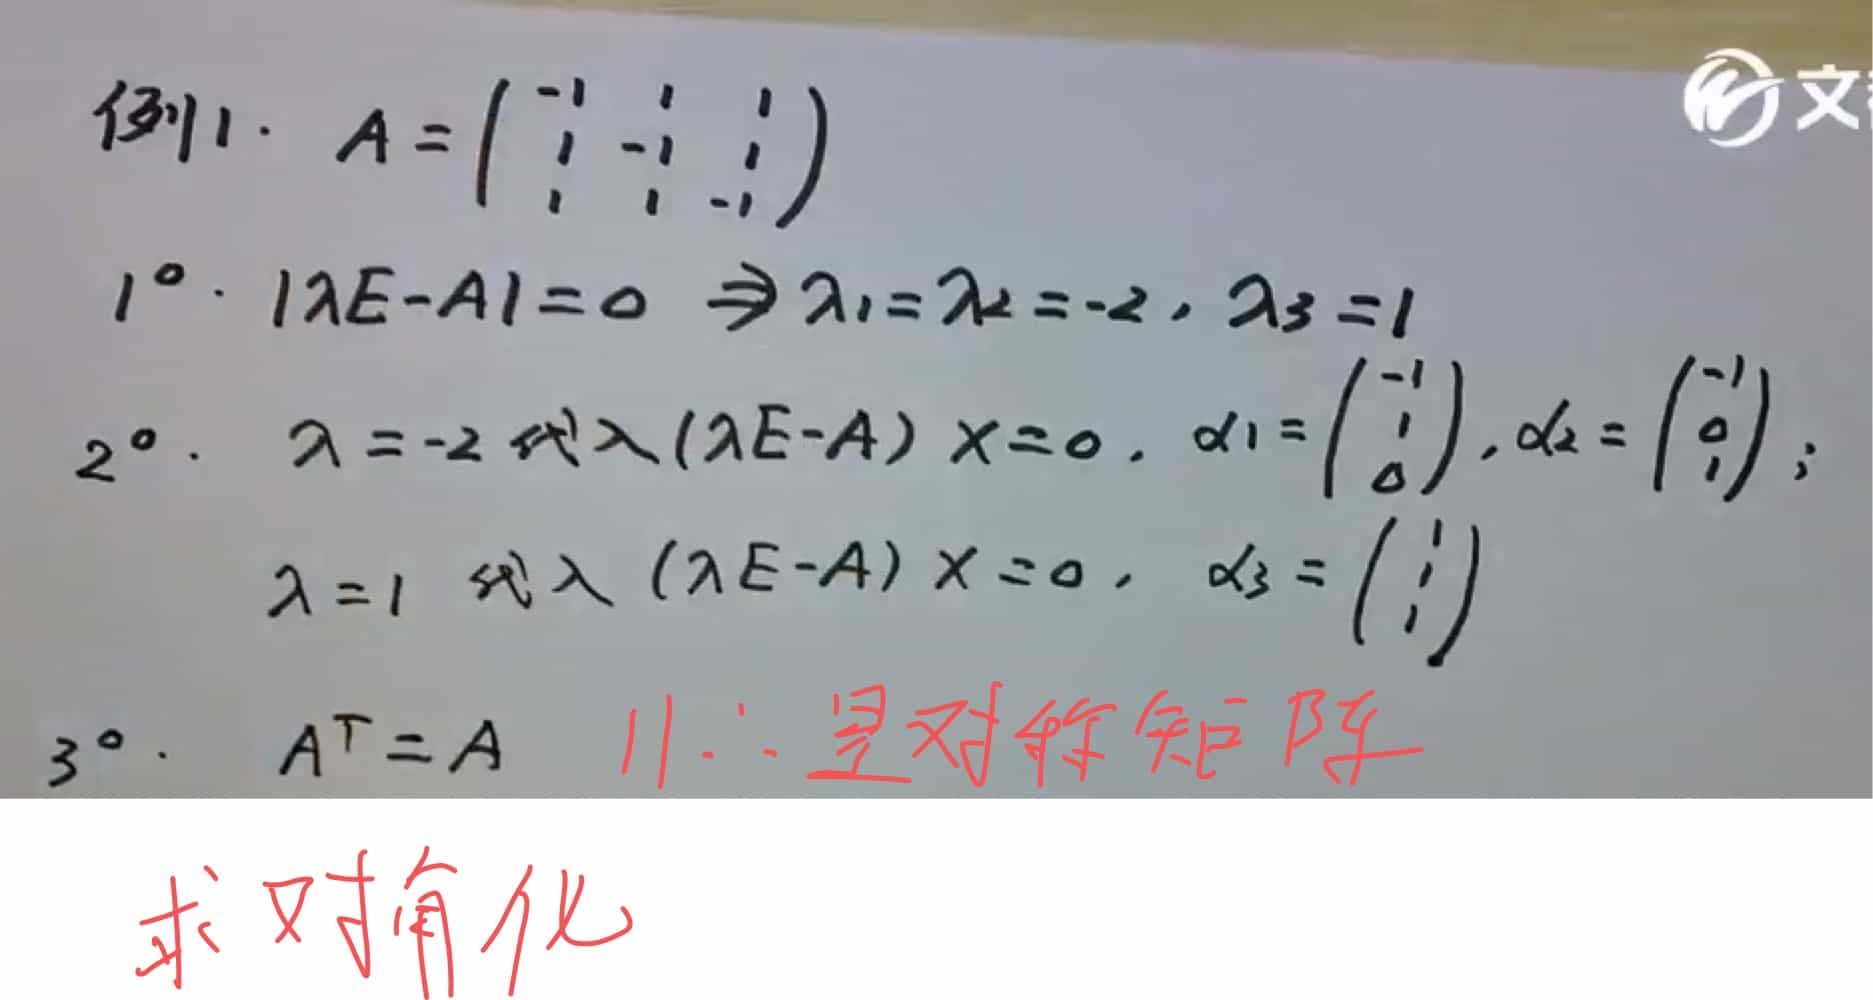 文
例1. A = ( -1 1 1
1 -1 1
1 1 -1 )
1°. |λE-A|=0 ⇒ λ1=λ2=-2, λ3=1
2°. λ=-2 代入(λE-A) X=0, α1=(-1 1 0), α2=(-1 0 1);
λ=1 代入(λE-A) X=0, α3=(1 1 1)
3°. A^T=A 11∴是对称矩阵
求对角化